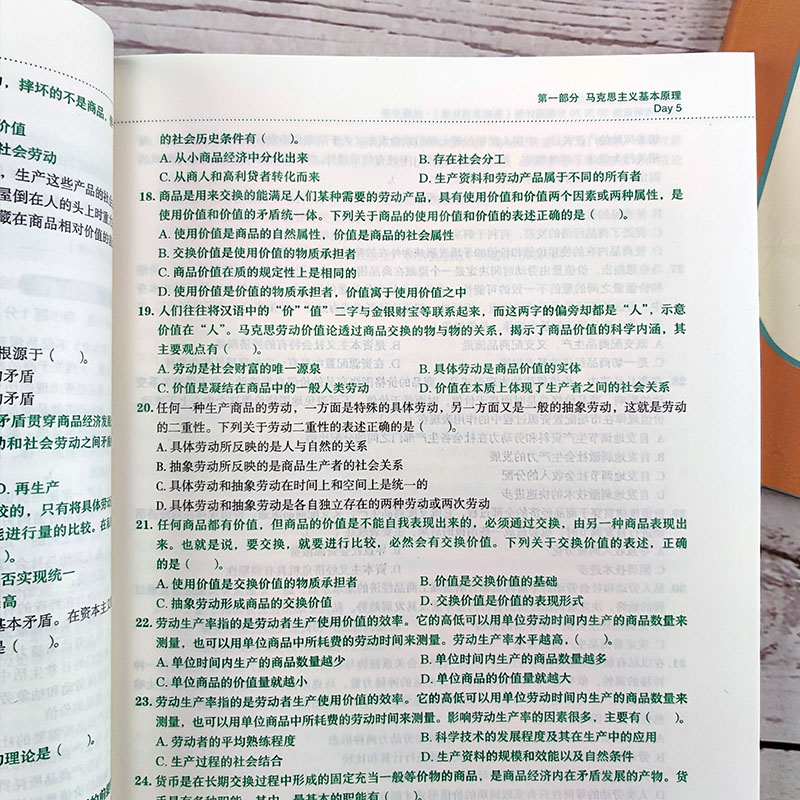 ，摔坏的不是商品，
价值
社会劳动
，生产这些产品的社
屋倒在人的头上时重
藏在商品相对价值的
根源于（　）。
为矛盾
力矛盾
矛盾贯穿商品经济发展
动和社会劳动之间矛盾
D. 再生产
较的，只有将具体劳动
能进行量的比较。在
）。
否实现统一
越高
基本矛盾。在资本主义
是（　）。
的理论是（　）。
第一部分 马克思主义基本原理
Day 5
的社会历史条件有（　）。
A. 从小商品经济中分化出来 B. 存在社会分工
C. 从商人和高利贷者转化而来 D. 生产资料和劳动产品属于不同的所有者
18. 商品是用来交换的能满足人们某种需要的劳动产品，具有使用价值和价值两个因素或两种属性，是
使用价值和价值的矛盾统一体。下列关于商品的使用价值和价值的表述正确的是（　）。
A. 使用价值是商品的自然属性，价值是商品的社会属性
B. 交换价值是使用价值的物质承担者
C. 商品价值在质的规定性上是相同的
D. 使用价值是价值的物质承担者，价值寓于使用价值之中
19. 人们往往将汉语中的“价”“值”二字与金银财宝等联系起来，而这两字的偏旁却都是“人”，示意
价值在“人”。马克思劳动价值论透过商品交换的物与物的关系，揭示了商品价值的科学内涵，其
主要观点有（　）。
A. 劳动是社会财富的唯一源泉 B. 具体劳动是商品价值的实体
C. 价值是凝结在商品中的一般人类劳动 D. 价值在本质上体现了生产者之间的社会关系
20. 任何一种生产商品的劳动，一方面是特殊的具体劳动，另一方面又是一般的抽象劳动，这就是劳动
的二重性。下列关于劳动二重性的表述正确的是（　）。
A. 具体劳动所反映的是人与自然的关系
B. 抽象劳动所反映的是商品生产者的社会关系
C. 具体劳动和抽象劳动在时间上和空间上是统一的
D. 具体劳动和抽象劳动是各自独立存在的两种劳动或两次劳动
21. 任何商品都有价值，但商品的价值是不能自我表现出来的，必须通过交换，由另一种商品表现出
来。也就是说，要交换，就要进行比较，必然会有交换价值。下列关于交换价值的表述，正确
的是（　）。
A. 使用价值是交换价值的物质承担者 B. 价值是交换价值的基础
C. 抽象劳动形成商品的交换价值 D. 交换价值是价值的表现形式
22. 劳动生产率指的是劳动者生产使用价值的效率。它的高低可以用单位劳动时间内生产的商品数量来
测量，也可以用单位商品中所耗费的劳动时间来测量。劳动生产率水平越高，（　）。
A. 单位时间内生产的商品数量越少 B. 单位时间内生产的商品数量越多
C. 单位商品的价值量就越小 D. 单位商品的价值量就越大
23. 劳动生产率指的是劳动者生产使用价值的效率。它的高低可以用单位劳动时间内生产的商品数量来
测量，也可以用单位商品中所耗费的劳动时间来测量。影响劳动生产率的因素很多，主要有（　）。
A. 劳动者的平均熟练程度 B. 科学技术的发展程度及其在生产中的应用
C. 生产过程的社会结合 D. 生产资料的规模和效能以及自然条件
24. 货币是在长期交换过程中形成的固定充当一般等价物的商品，是商品经济内在矛盾发展的产物。货
币具有多种职能，其中，最基本的职能有（　）。